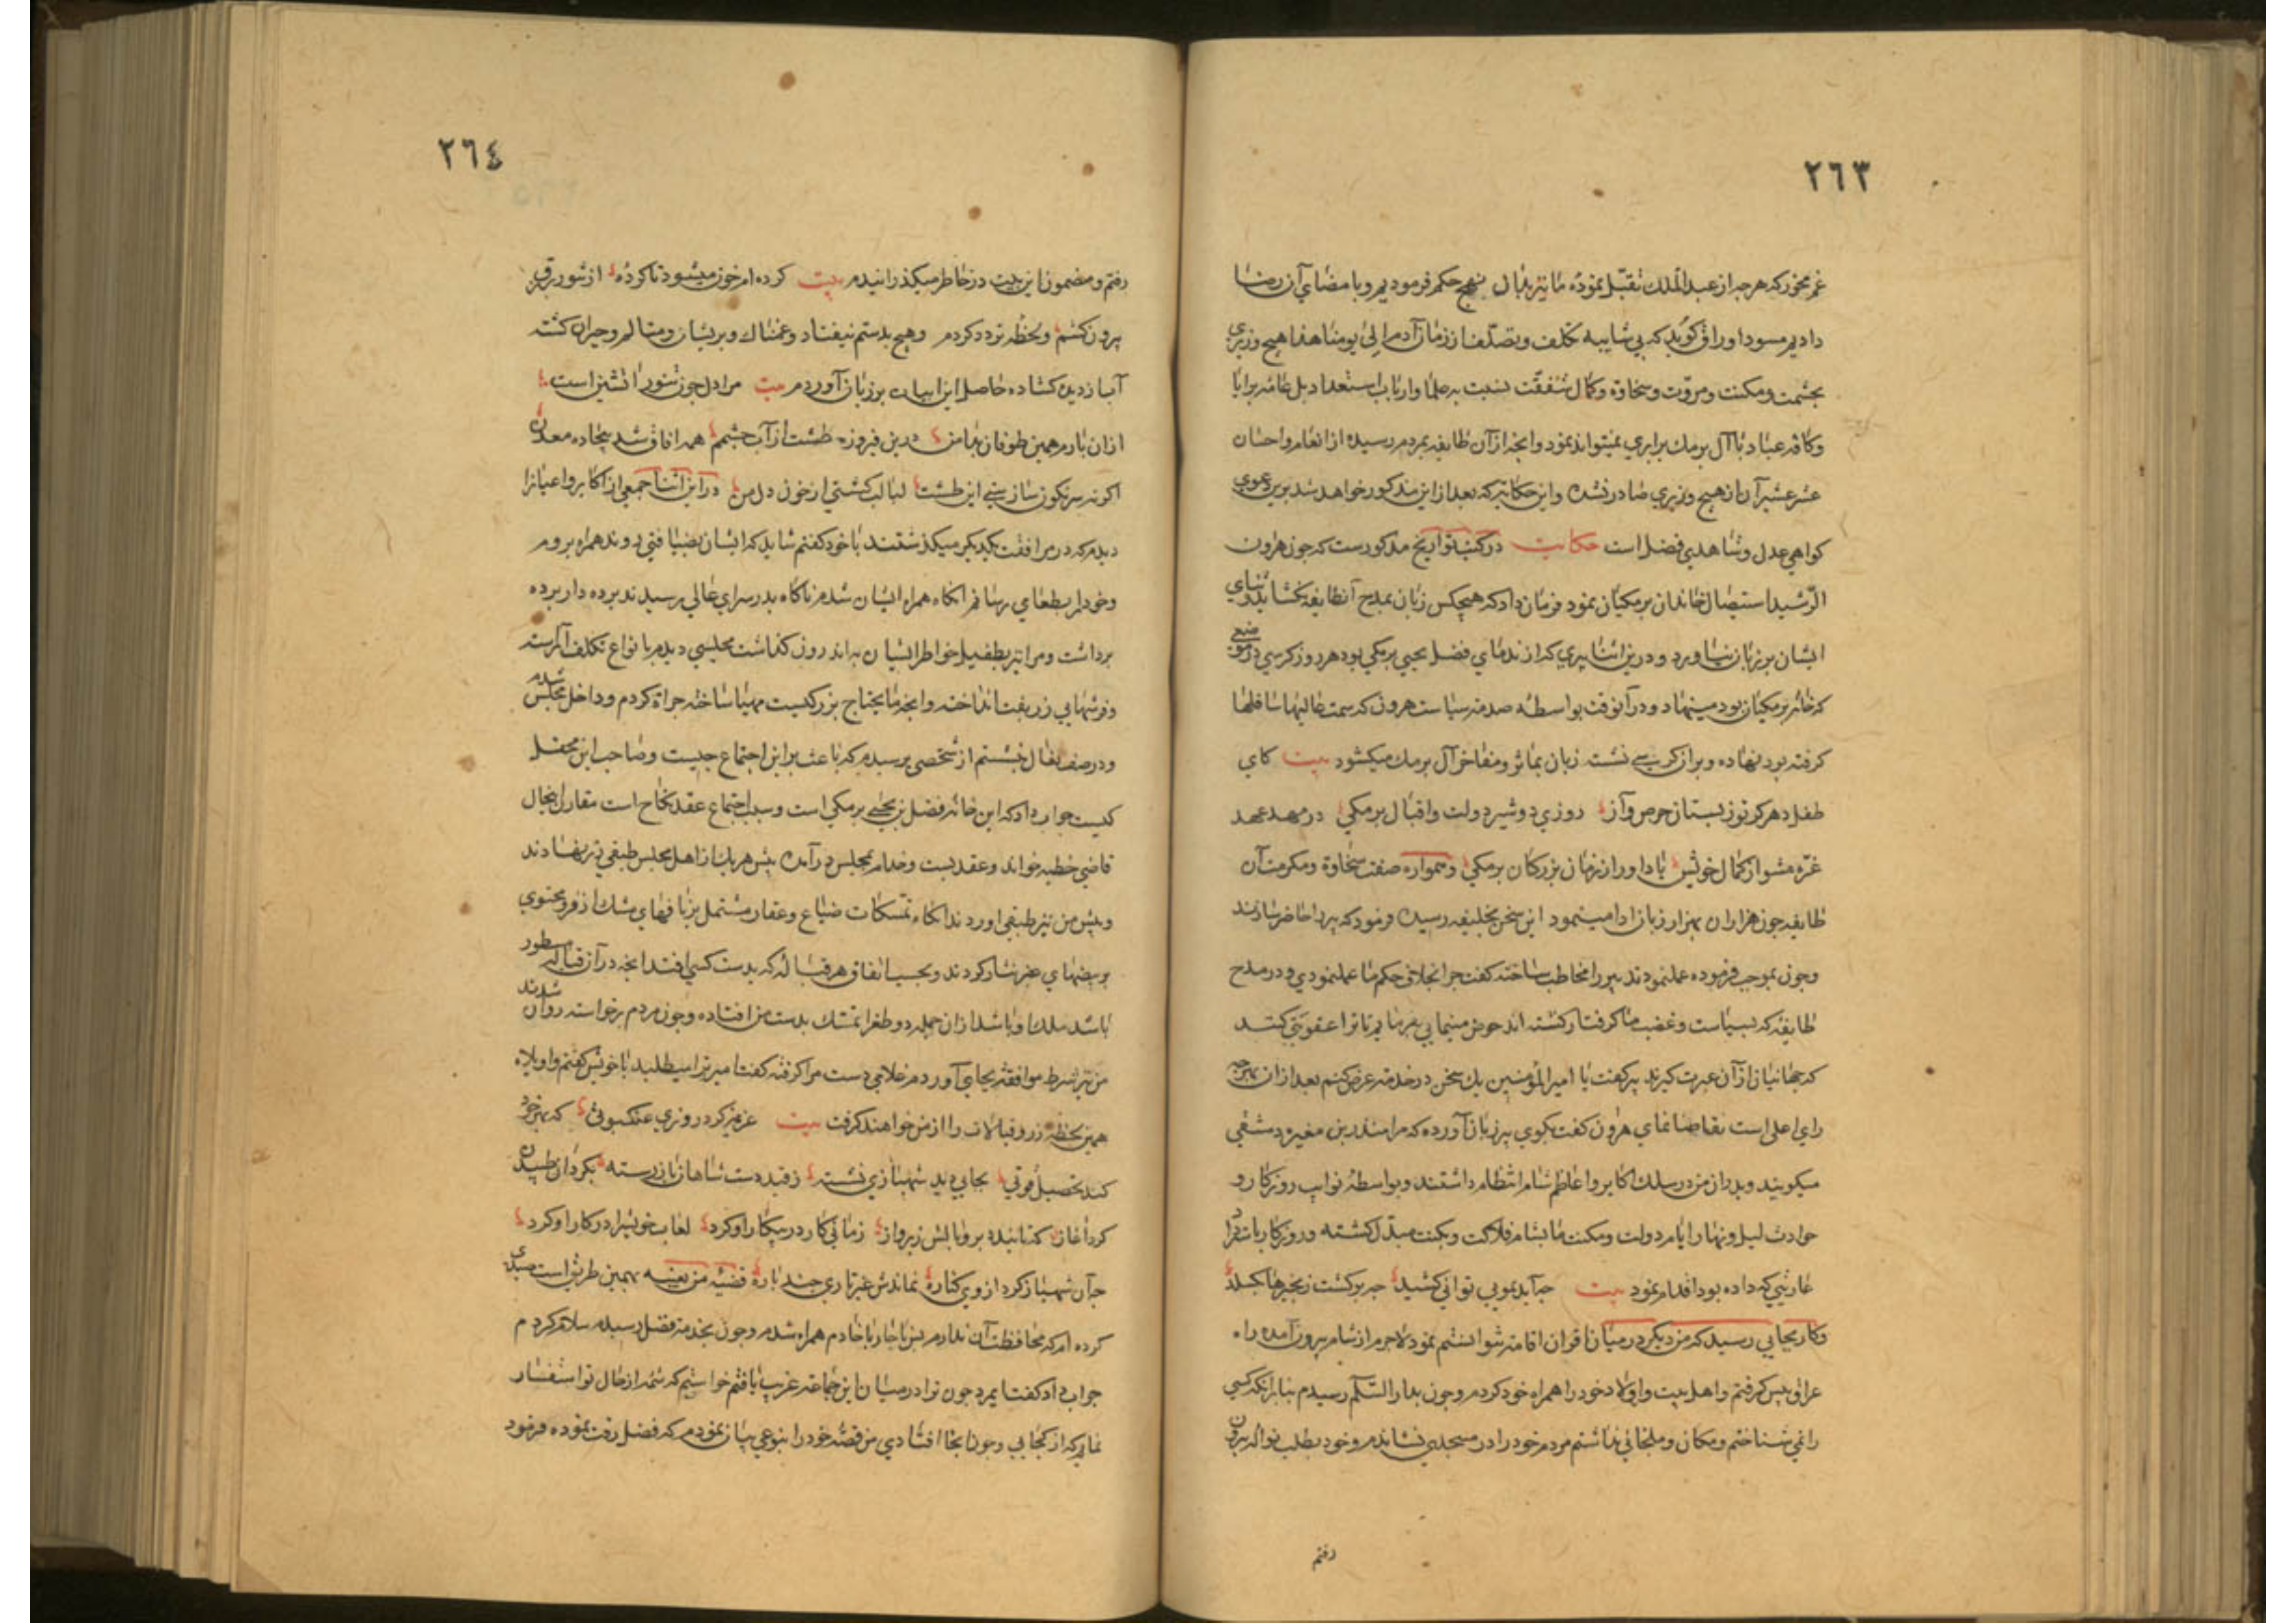 ٢٦٣
غم مخور که هر چه از عبدالملک تقبّل نموده ما نیز بدان نهج حکم فرمودیم و بامضای آن رضا
دادیم مسود اوراق کوید که بی شایبه تکلف و تصلّف از زمان آدم الی یومنا هذا هیچ وزیری
بحشمت و مکنت و مروّت و سخاوة و کمال شفقّت نسبت به علما و ارباب استعداد بل عامه برایا
و کافه عباد با آل برمک برابری نمیتواند نمود و انجه از آن طایفه بمردم رسیده از انعام و احسان
عشر عشیر آن از هیچ وزیری صادر نشده و این حکایتی که بعد از این مذکور خواهد شد برین دعوی
کواهی عدل و شاهدی فضل است حکایت در کتب تواریخ مذکورست که جون هارون
الرّشید استیصال خاندان برمکیان نمود فرمان داد که هیچکس زبان بمدح آنطایفه نکشاید و ثنای
ایشان بر زبان نیاورد و درین اثنا پیری که از ندمای فضل یحیی برمکی بود هر روز کرسی در موضعی
که خانه برمکیان بود مینهاد و در آنوقت بواسطه صدمه سیاست هرون که سمت عالیها سافلها
کرفته بود نهاده و بر آن کرسی نشسته زبان بمآثر و مفاخر آل برمک میکشود بیت کای
طفل دهر کر تو ز پستان حرص و آز روزی دو شیر دولت و اقبال برمکی در مهد عهد
غرّه مشو از کمال خویش یاد آور از زمان بزرکان برمکی و همواره صفت سخاوة و مکرمت آن
طایفه جون هزاران بهزار زبان ادا مینمود این سخن بخلیفه رسیده فرمود که پیر را حاضر سازند
و جون بموجب فرموده عملنمودند پیر را مخاطب ساخته کفت جرا بخلاف حکم ما عملنمودی و در مدح
طایفه که بسیاست و غضب ما کرفتار کشته اند خوض مینمایی بفرمایم تا ترا عقوبتی کنند
که جهانیان از آن عبرت کیرند پیر کفت یا امیر المؤمنین یک سخن در خدمت عرض کنم بعد از ان
رای اعلی است تقاضا نمای هرون کفت بکوی پیر زبان آورده که مرا منذر بن مغیره دمشقی
میکویند و پدران من در سلک اکابر و اعاظم شام انتظام داشتند و بواسطه نوایب روزکار و
حوادث لیل و نهار ایام دولت و مکنت ما بشام فلاکت و نکبت مبدّل کشته و روزکار باسترداد
عاریتی که داده بود اقدام نمود بیت جه آید بمویی توانی کشید جه برکشت زنجیرها بکسلد
و کار بجایی رسید که من دیکر در میان اقران اقامت نتوانستم نمود لاجرم از شام بیرون آمده راه
عراق پیش کرفتم و اهل بیت و اولاد خود را همراه خود کردم و جون بدار السّلام رسیدم بنابر انکه کسی
را نمی شناختم و مکان و ملجائی نداشتم مردم خود را در مسجدی نشاندم و خود بطلب نواله بیرون
رفتم
٢٦٤
رفتم و مضمون این بیت در خاطر میکذرانیدم بیت کرده ام خون میشود ناکرده از شور برق
برون کشتم و لحظه تردد کردم و هیچ بدستم نیفتاد و غمناک و پریشان و متالم و حیران کشته
آب از دیده کشاده حاصل این ابیات بر زبان آوردم بیت مرا دل جون تنور آتشین است
ازان بارم همین طوفان بدامن درین فیروزه طشت از آب جشمم همه آفاق شد بیجاده معدن
اکر نه سرنکون سازی این طشت لبالب کشتی از خون دل من در این اثنا جمعی از اکابر و اعیان را
دیدم که در مرافقت یکدیکر میکذشتند با خود کفتم شاید که ایشان بضیافتی روند همراه بروم
و خود را بطعامی رسانم انکاه همراه ایشان شدم ناکاه بدر سرای عالی رسیدند برده دار برده
برداشت و مرا نیز بطفیل خواطر ایشان به اندرون کذاشت مجلسی دیدم بانواع تکلف آراسته
و فرشهایی زربفت انداخته و انجه مایحتاج بزرکیست مهیا ساخته جراة کردم و داخل مجلس شدم
و در صف نعال نشستم از شخصی پرسیدم که باعث بر این اجتماع جیست و صاحب این محفل
کیست جواب داد که این خانه فضل بن یحیی برمکی است و سبب اجتماع عقد نکاح است مقارن اینحال
قاضی خطبه خواند و عقد بست و خدام مجلس در آمده پیش هر یک از اهل مجلس طبقی زر نهادند
و پیش من نیز طبقی اوردند انکاه تمسکات ضیاع و عقار مشتمل بر نافهای مشک از فر و محتوی
بر بیضهای عنبر نثار کردند و بحسب اتفاق هر قباله که بدست کسی افتد انجه در آن قباله مسطور
باشد ملک او باشد از ان جمله دو طغرا تمسک بدست من افتاده و جون مردم برخواسته روان شدند
من نیز شرط موافقه بجای آوردم غلامی دست مرا کرفته کفت امیر ترا میطلبد با خویش کفتم واویلاه
همین لحظه زر و قبالات را از من خواهند کرفت بیت عزم کرد روزی عنکبوتی که بهر خود
کند تحصیل قوتی بجایی دید شهبازی نشسته ز قید دست شاهان باز رسته بکردان طپیدن
کرد آغاز که تا بندد بر و بالش ز پرواز زمانی کار در پیکار او کرد لعاب خویش را در کار او کرد
جو آن شهباز کرد از وی کناره نماندش غیر تاری جند باره قضیه من بعینه بهمین طریق است صیدی
کرده ام که محافظت آن ندارم پس ناجار با خادم همراه شدم و جون بخدمت فضل رسیدم سلام کردم
جواب داد کفت ایمرد جون ترا در میان این جماعت غریب یافتم خواستم که شمه از حال تو استفسار
نمایم که از کجایی و جون اینجا افتادی من قصّه خود را بنوعی بیان نمودم که فضل رقت نموده فرمود